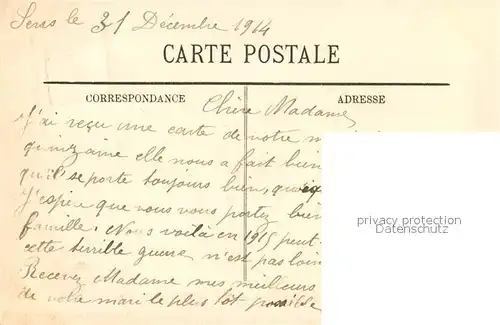 Sens le 31 Décembre 1914
CARTE POSTALE
CORRESPONDANCE
ADRESSE
Chère Madame,
J'ai reçu une carte de votre
quinzaine elle nous a fait bien
qu'il se porte toujours bien,
J'espère que vous vous portez bien
famille. Nous voilà en 1915 peut-
cette terrible guerre n'est pas loin
Recevez Madame mes meilleurs
de votre mari le plus tôt possible
privacy protection
Datenschutz